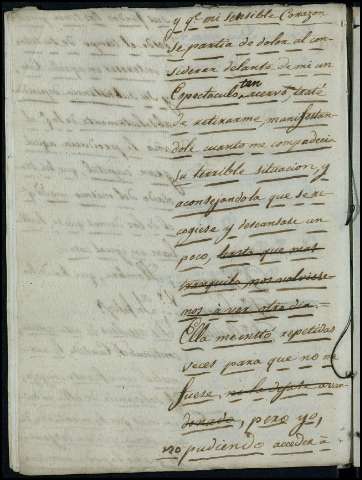 y q.e mi sensible Corazon
se partia de dolor al con
siderar delante de mi un
Espectaculo tan acervo, traté
de retirarme, manifestan
dole cuanto me compadecia
su terrible situacion, y
aconsejandola que se re
cogiese y descansase un
poco, hasta que mas
tranquila nos volviese
mos à ver otro dia.
Ella me instó repetidas
veces para que no me
fuese, ni la dejase aban
donada, pero yo,
no pudiendo acceder à